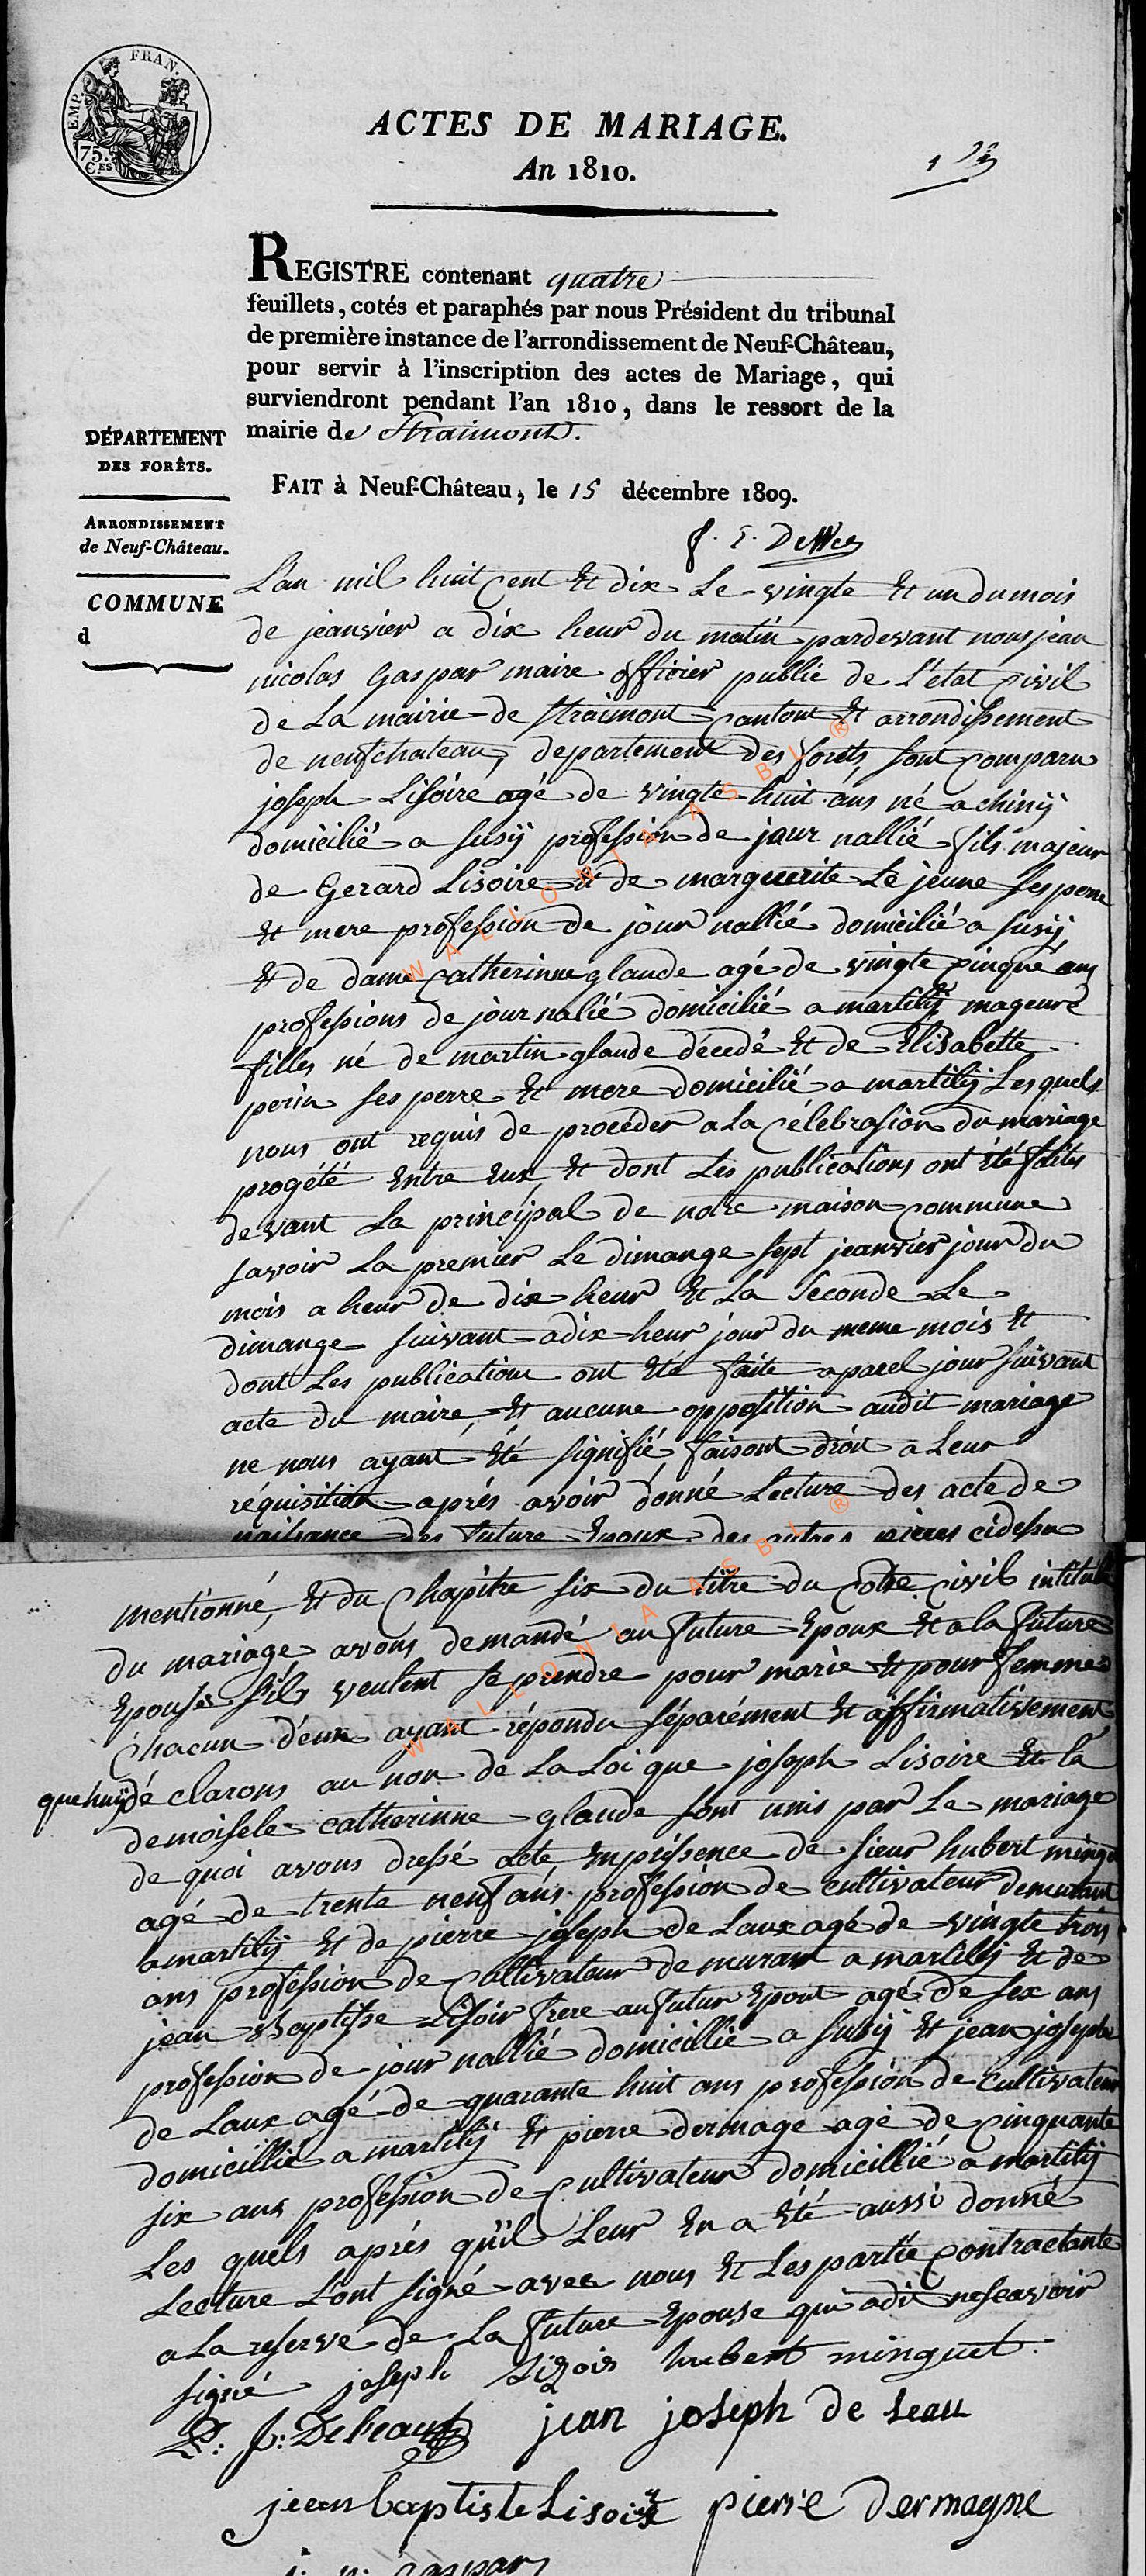 EMP. FRAN.
75.
C.ES
ACTES DE MARIAGE.
An 1810.
REGISTRE contenant quatre
feuillets, cotés et paraphés par nous Président du tribunal
de première instance de l'arrondissement de Neuf-Château,
pour servir à l'inscription des actes de Mariage, qui
surviendront pendant l'an 1810, dans le ressort de la
mairie de Straimont.
FAIT à Neuf-Château, le 15 décembre 1809.
DÉPARTEMENT
DES FORÊTS.
ARRONDISSEMENT
de Neuf-Château.
COMMUNE
d
L'an mil huit cent et dix Le vingte et un du mois
de jeanvier a dix heur du matin pardevant nous jean
nicolas Gaspar maire officier public de L'état civil
de La mairie de straimont canton et arrondissement
de neufchateau, departement des forets, sont comparu
joseph Lisoire agé de vingte huit ans né a chinÿ
domicilié a susÿ profession de jour nallié fils majeur
de Gerard Lisoire et de marguerite Le jeune ses perre
et mere profession de jour nallié domicilié a susÿ
et de dame catherinne glaude agé de vingte cinque ans
professions de jour nalié domicilié a martilÿ mageure
filles né de martin glaude décedé et de Elisabette
perin ses perre et mere domicilié a martilÿ Lesquels
nous ont requis de procéder a La célébrasion du mariage
progété entre eux et dont Les publications ont été faites
devant La principal de notre maison commune
savoir La premier Le dimange sept jeanvier jour du
mois a heur de dix heur et La seconde Le
dimange suivant a dix heur jour du meme mois et
dont Les publication ont été faite a parel jour suivant
acte du maire, et aucune opposition audit mariage
ne nous ayant été signifié, faisont droit a Leur
réquisition aprés avoir donné Lecture des acte de
naissance des future Epoux des autres pieces cidessu
mentionné, et du Chapitre six du titre du Code civil intitulé
du mariage avons demandé au future Epoux et a la future
Epouse s'ils veulent se prendre pour marie et pour femme
Chacun d'eux ayant répondu séparément et affirmativement
dé clarons au nom de La Loi que joseph Lisoire et la
demoisele catherinne glaude sont unis par Le mariage
de quoi avons dressé acte En présence de sieur hubert minguet
agé de trente neuf ans profession de cultivateur demurant
a martilÿ et de pierre joseph de Laux agé de vingte trois
ans profession de Cultivateur demurant a martilÿ et de
jean Baptiste Lisoir frere au futur Epoux agé de sex ans
profession de jour nallié domicillié a susÿ et jean joseph
de Laux agé de quarante huit ans profession de Cultivateur
domicillié a martilÿ et pierre dermage agé de cinquante
six ans profession de Cultivateur domicillié a martilÿ
Les quels aprés qu'il Leur En a été aussi donné
Lecture L'ont signé avec nous et Les partie contractante
a La reserve de La future Epouse qui a dit ne scavoir
signé joseph Lizoir hubert minguet
P: J: Deleaux jean joseph de Leau
jean baptiste Lisoire pierre dermagne
j. n. gaspar
WALLONIA ASBL ®
WALLONIA ASBL ®